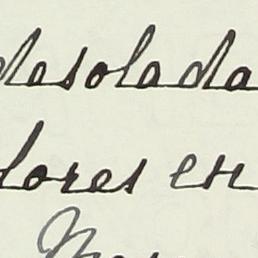 desolada
dores en